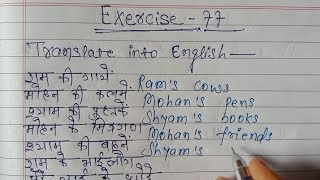 Exercise - 77
Translate into English —
राम की गायें Ram's cows
मोहन की कलमें Mohan's pens
श्याम की पुस्तकें Shyam's books
मोहन के मित्रगण Mohan's friends
श्याम की बहनें Shyam's
राम के भाईलोग